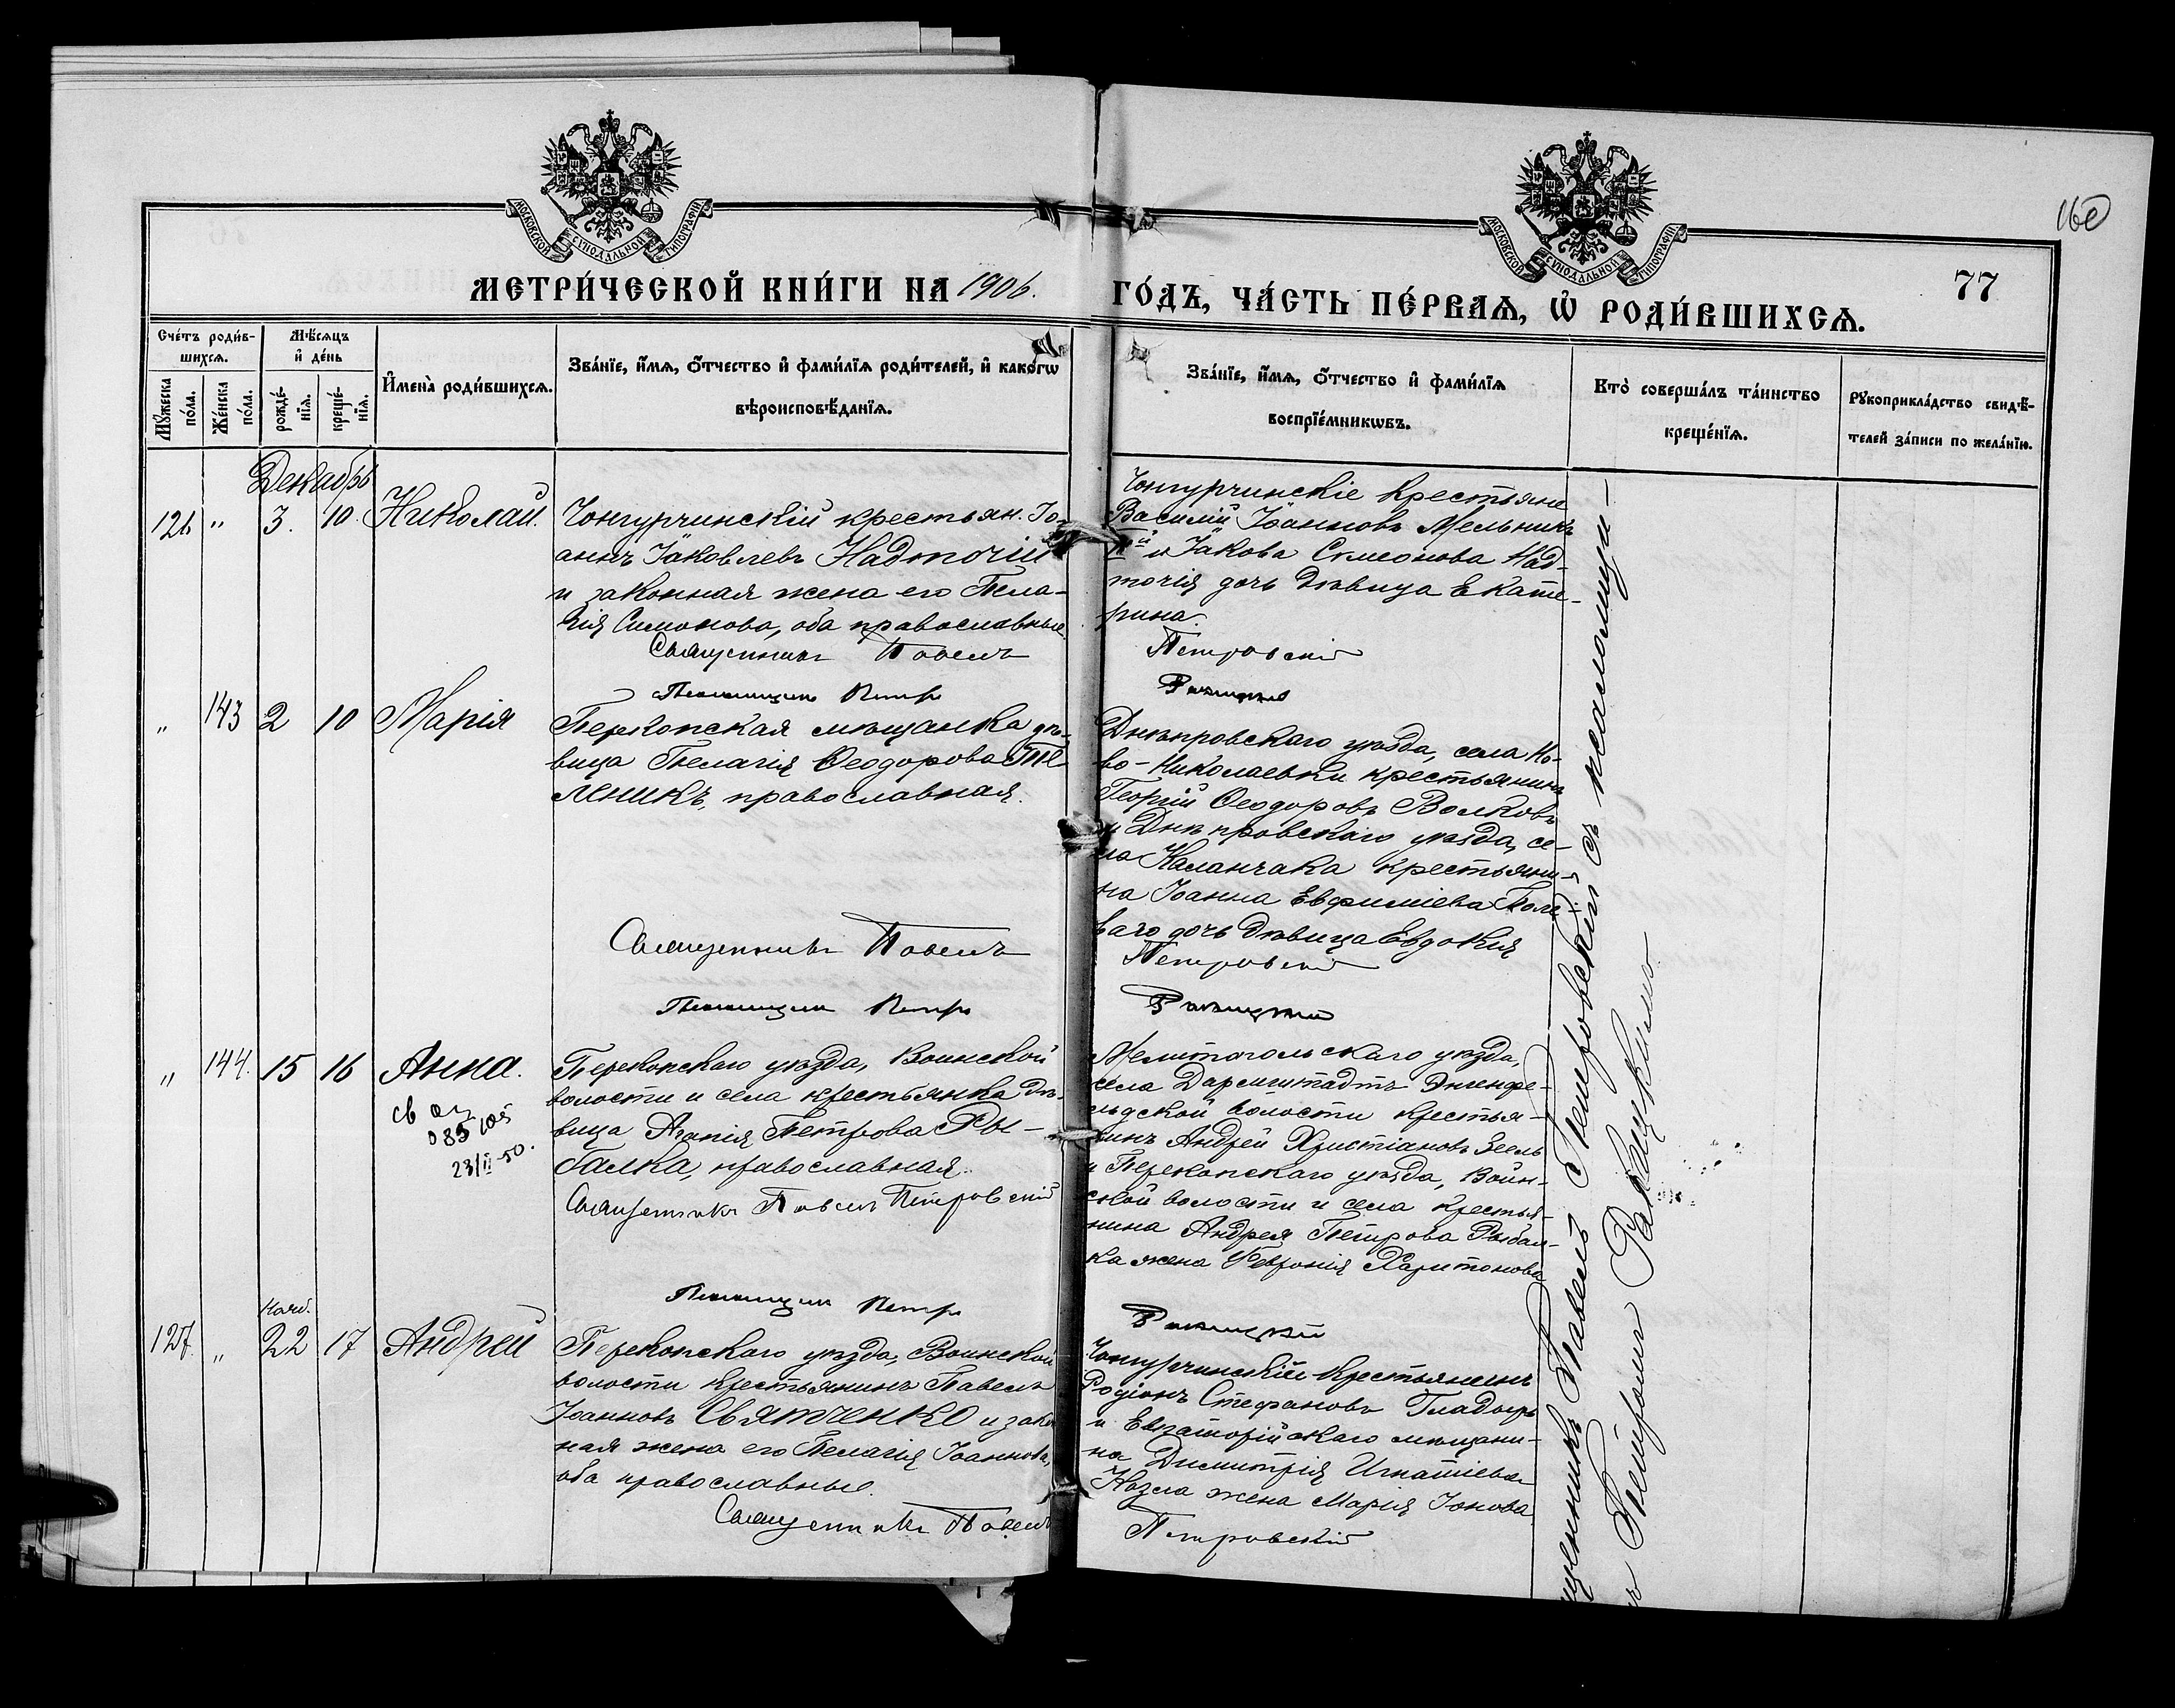 160
77
МОСКОВСКОЙ СѴНОДАЛЬНОЙ ТИПОГРАФІИ
МОСКОВСКОЙ СѴНОДАЛЬНОЙ ТИПОГРАФІИ
МЕТРИ́ЧЕСКОЙ КНИ́ГИ НА 1906.
ГО́ДЪ, ЧА́СТЬ ПЕ́РВАѦ, Ѽ РОДИ́ВШИХСѦ.
Сче́тъ роди́в-
шихсѧ.
Мꙋ́жеска по́ла.
Же́нска по́ла.
Мѣ́сѧцъ
и҆ де́нь
рожде́-
нїѧ.
креще́-
нїѧ.
И҆мена̀ роди́вшихсѧ.
Зва́нїе, и҆́мѧ, ѻ҆́тчество и҆ фами́лїѧ роди́телей, и҆ како́гѡ
вѣроисповѣ́данїѧ.
Зва́нїе, и҆́мѧ, ѻ҆́тчество и҆ фами́лїѧ
воспрїе́мникѡвъ.
Кто̀ соверша́лъ та́инство
креще́нїѧ.
Рꙋкоприкла́дство свидѣ́-
телей за́писи по жела́нїю.
Декабрь
126 " 3. 10. Николай.
Чонгурчинскій крестьян. Іо-
аннъ Іаковлевъ Надточій
и законная жена его Пела-
гія Симонова, оба православные.
Священникъ Павелъ
Псаломщикъ Петръ
Чонгурчинскіе крестьяне
Василій Іоанновъ Мельникъ
и Іакова Симеонова Над-
точія дочь дѣвица Екате-
рина.
Петровскій
Ракицкій
" 143 2 10 Марія
Перекопская мѣщанка дѣ-
вица Пелагія Ѳеодорова
православная.
Священникъ Павелъ
Псаломщикъ Петръ
Днѣпровскаго уѣзда, села Но-
во-Николаевки крестьянинъ
Георгій Ѳеодоровъ Волковъ
и Днѣпровскаго уѣзда, се-
ла Каланчака крестьяни-
на Іоанна Евфиміева Поле-
ваго дочь дѣвица Евдокія
Петровскій
Ракицкій
" 144. 15 16 Анна.
23/II-50.
Перекопскаго уѣзда, Воинской
волости и села крестьянка дѣ-
вица Агапія Петрова Ры-
балка, православная.
Священникъ Павелъ Петровскій
Псаломщикъ Петръ
Мелитопольскаго уѣзда,
села Дармштадтъ Эйгенфе-
льдской волости крестья-
нинъ Андрей Христіановъ Зеель
и Перекопскаго уѣзда, Воин-
ской волости и села крестья-
нина Андрея Петрова Рыбал-
ка жена Февронія Харитонова
Ракицкій
Нояб.
127. " 22 17 Андрей
Перекопскаго уѣзда, Воинской
волости крестьянинъ Павелъ
Іоанновъ Святченко и закон
ная жена его Пелагія Іоаннова,
оба православные.
Священникъ Павелъ
Чонгурчинскій крестьянинъ
Родіонъ Стефановъ Гладырь
и Евпаторійскаго мѣщани-
на Димитрія Игнатіева
Козла жена Марія Іонова.
Петровскій
щенникъ Павелъ Петровскій съ псаломщи-
Петромъ Ракицкимъ